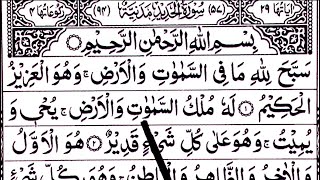 اٰیَاتُهَا ۲۹ (۵۷) سُوْرَةُ الْحَدِیْدِ مَدَنِیَّةٌ (۹۴) رُكُوْعَاتُهَا ۴
بِسْمِ اللّٰهِ الرَّحْمٰنِ الرَّحِیْمِ
سَبَّحَ لِلّٰهِ مَا فِی السَّمٰوٰتِ وَالْاَرْضِ ۚ وَهُوَ الْعَزِیْزُ
الْحَكِیْمُ ۝ لَهٗ مُلْكُ السَّمٰوٰتِ وَالْاَرْضِ ۚ یُحْیٖ وَ
یُمِیْتُ ۚ وَهُوَ عَلٰی كُلِّ شَیْءٍ قَدِیْرٌ ۝ هُوَ الْاَوَّلُ
وَالْاٰخِرُ وَالظَّاهِرُ وَالْبَاطِنُ ۚ وَهُوَ بِكُلِّ شَیْءٍ